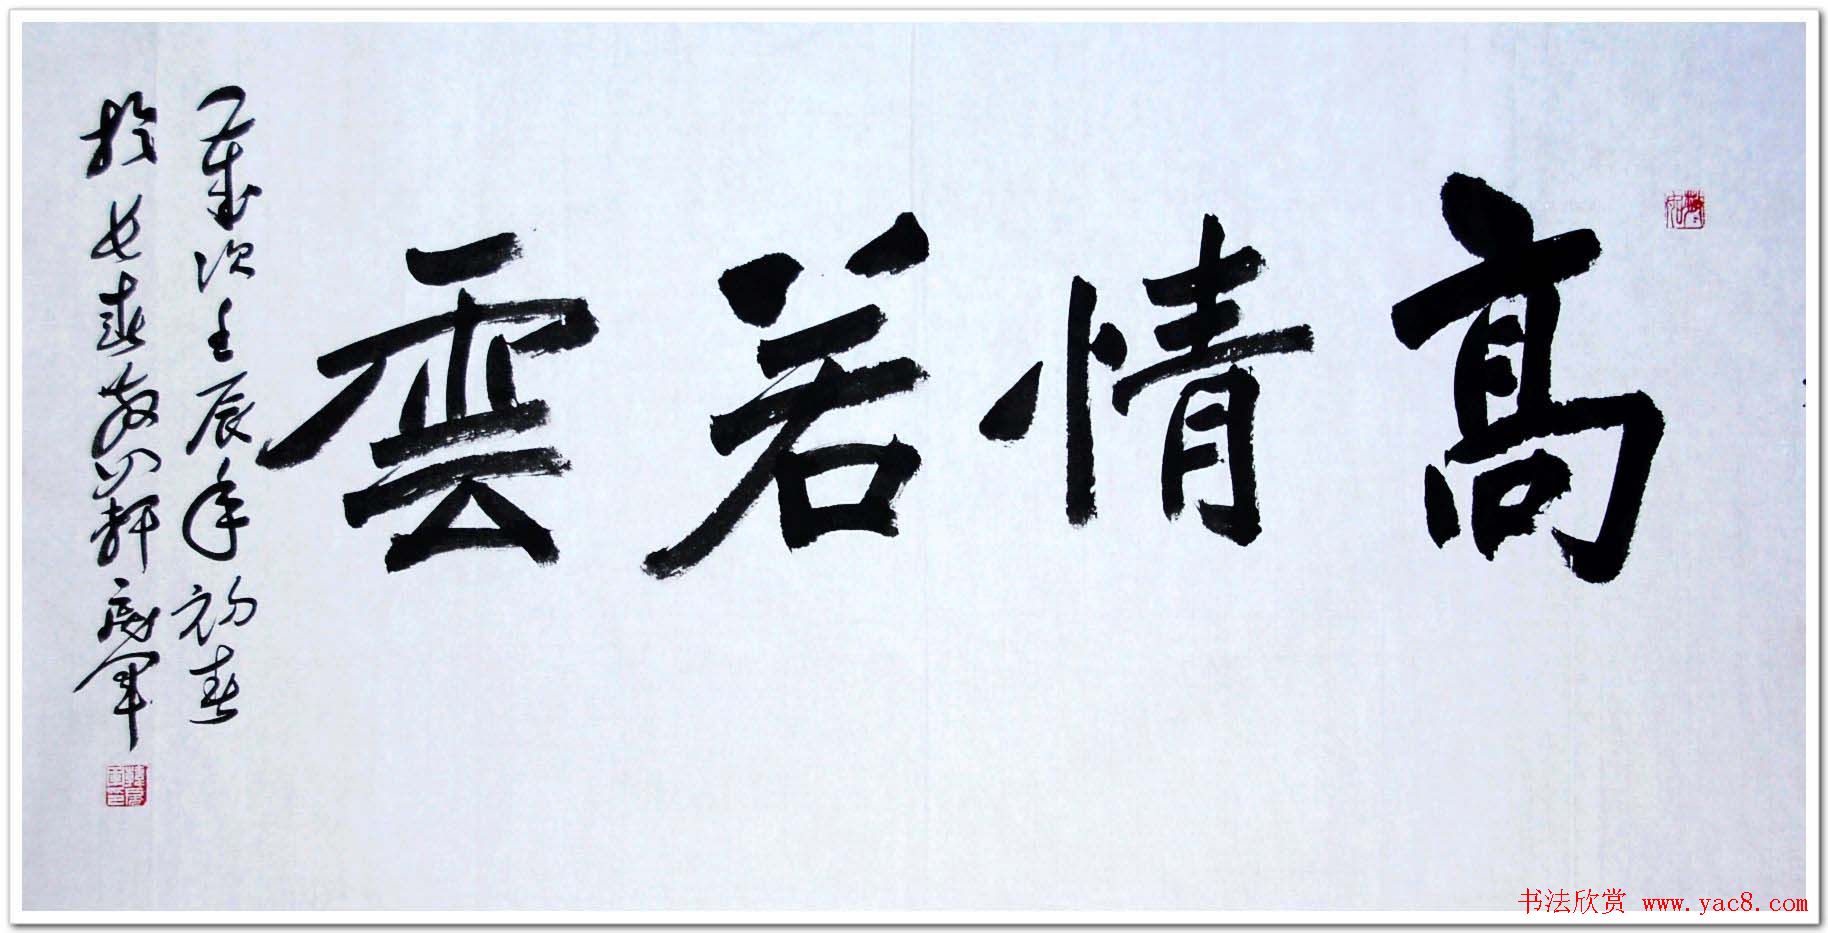 高情若雲
歲次壬辰年初春
於長春 軒 軍
书法欣赏 www.yac8.com